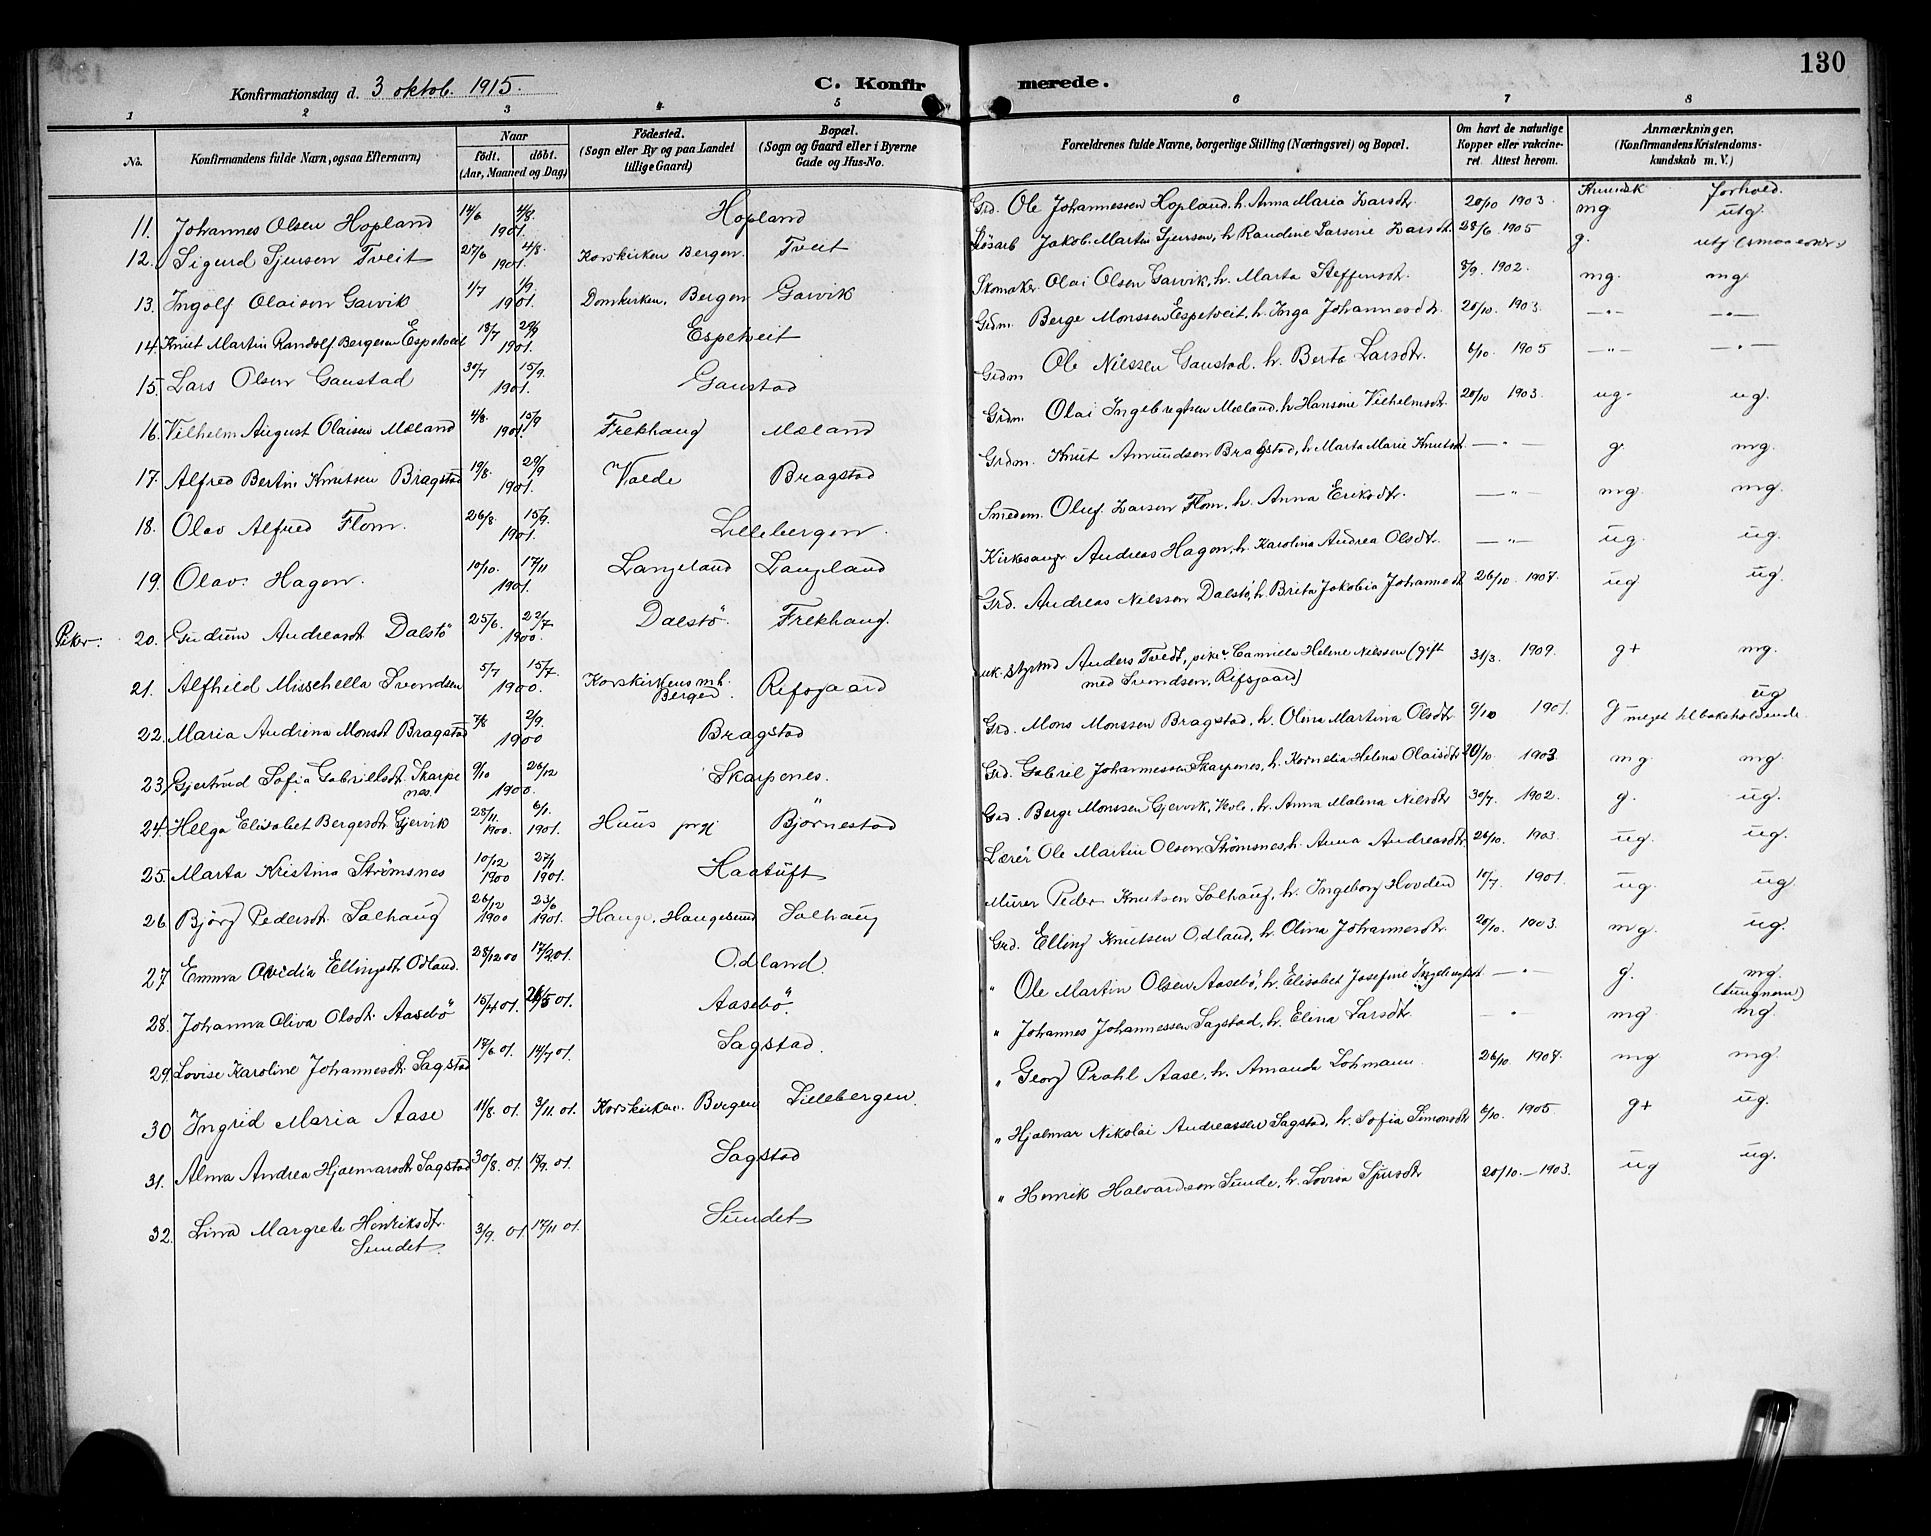 130
Konfirmationsdag d. 3 oktob. 1915.
C. Konfirmerede.
1 2 3 4 5 6 7 8
No. Konfirmandens fulde Navn, ogsaa Efternavn) Naar födt. döbt. (Aar, Maaned og Dag) Födested. (Sogn eller By og paa Landet tillige Gaard) Bopæl. (Sogn og Gaard eller i Byerne Gade og Hus-No. Forældrenes fulde Navne, borgerlige Stilling (Næringsvei) og Bopæl. Om havt de naturlige Kopper eller vakcineret. Attest herom. Anmærkninger. (Konfirmandens Kristendomskundskab m. V.)
Kundsk forhold.
11. Johannes Olsen Hopland 14/6 4/8. 1901. Hopland Grd. Ole Johannessen Hopland, h. Anna Maria Larsdtr. 20/10 1903. mg utg.
12. Sigurd Sjursen Tveit 27/6 4/8. 1901. Korskirken Bergen. Tveit Løsarb Jakob Martin Sjursen, h. Randine Larsine Larsdt. 28/6 1905 g.
13. Ingolf Olaisen Garvik 1/7 1/9. 1901. Domkirken, Bergen Garvik Skomaker Olai Olsen Garvik, h. Marta Steffensdtr. 8/9. 1902. mg. mg
14. Knut Martin Randolf Bergesen Espetveit 18/7 29/9 1901. Espetveit Grdm. Berge Monssen Espetveit, h. Inga Johannesdtr. 20/10 1903. —"— —"—
15. Lars Olsen Gaustad 30/7 15/9. 1901. Gaustad Grdm Ole Nilssen Gaustad, h. Berta Larsdtr. 6/10. 1905 —"— —"—
16. Vilhelm August Olaisen Mæland 4/8. 15/9 1901. Frekhaug Mæland Grdm. Olai Ingebregtsen Mæland, h Hansine Vilhelmsdtr. 20/10 1903. ug. ug.
17. Alfred Bertin Knutsen Bragstad 19/8. 29/9 1901. Valde Bragstad Grdm. Knut Amundsen Bragstad, h. Marta Marie Knutsdt. —"— g. mg.
18. Olav Alfred Flom. 26/8. 15/9. 1901. Lillebergen. Smedem. Oluf Larsen Flom, h. Anna Eriksdtr. —"— mg. mg.
19. Olav Hagen. 10/10. 17/11 1901. Langeland Langeland Kirkesangr Andreas Hagen, h. Karolina Andrea Olsdtr. —"— ug. ug.
Piker. 20. Gudrun Andreasdt Dalstö 25/6. 22/7 1900. Dalstö. Frekhaug. Grd. Andreas Nilssen Dalstö, h. Brita Jakobia Johannesdt 26/10 1907. ug ug.
21. Alfhild Missehella Svendsen 5/7 15/7. 1900. Korskirkens m h. Bergen. Refsgaard uk. styrmd Anders Tvedt, pike Camilla Helene Nilssen (gift med Svendsen, Rifsgaard) 31/3. 1909. g+ mg.
22. Maria Andrina Monsdt Bragstad 7/8 2/9. 1900 Bragstad Grd. Mons Monssen Bragstad, h. Olina Martina Olsdtr. 9/10 1901. g meget tilbakeholdende. ug
23. Gjertrud Sofia Gabrielsdt. Skarpenes. 9/10 26/12 1900. Skarpenes. Grd. Gabriel Johannessen Skarpenes, h. Kornelia Helena Olaisdtr 20/10. 1903. mg. mg.
24. Helga Elisabet Bergesdt. Gjervik 28/11. 1900. 6/1. 1901. Huus prgj Björnestad Grd. Berge Monssen Gjervik, h. Anna Malena Nilsdtr 30/7. 1902. g. ug.
25. Marta Kristina Strömsnes 10/12 1900 27/1 1901. Haatuft Lærer Ole Martin Olsen Strömsnes, h. Anna Andreasdtr 26/10. 1903. ug. ug.
26. Björg Pedersdt. Solhaug 26/12 1900 23/6 1901. Hauge, Haugesund Solhaug Murer Peder Knutsen Solhaug, h. Ingeborg Hovden 10/7. 1901. ug. ug.
27 Emma Ovidia Ellingsdt. Odland. 28/12 00 17/2 01. Odland. Grd. Elling Knutsen Odland, h. Olina Johannesdtr. 20/10. 1903. mg. ug.
28. Johanna Oliva Olsdt. Aasebö 15/4 01. 26/5 01. Aasebö. " Ole Martin Olsen Aasebö, h. Elisabet Josefine —"— g. mg. (tungnem)
29. Lovise Karoline Johannesdt. Sagstad 17/6 01. 14/7 01. Sagstad. " Johannes Johannessen Sagstad, h. Elina Larsdtr. —"— mg. mg.
30 Ingrid Maria Aase 11/8. 01. 3/11. 01. Korskirken. Bergen Lillebergen. " Georg Prahl Aase, h. Amanda Lohmann. 26/10 1907. mg mg.
31. Alma Andrea Hjalmarsdt. Sagstad 30/8. 01. 15/9. 01. Sagstad " Hjalmar Nikolai Andreassen Sagstad, h. Sofia Simonsdtr 6/10. 1905. g+ ug.
32. Lina Margrete Henriksdtr. Sundet. 3/9. 01 17/11 01. Sundet " Henrik Halvardsen Sunde, h. Lovisa Sjursdtr 20/10.—1903. ug ug.